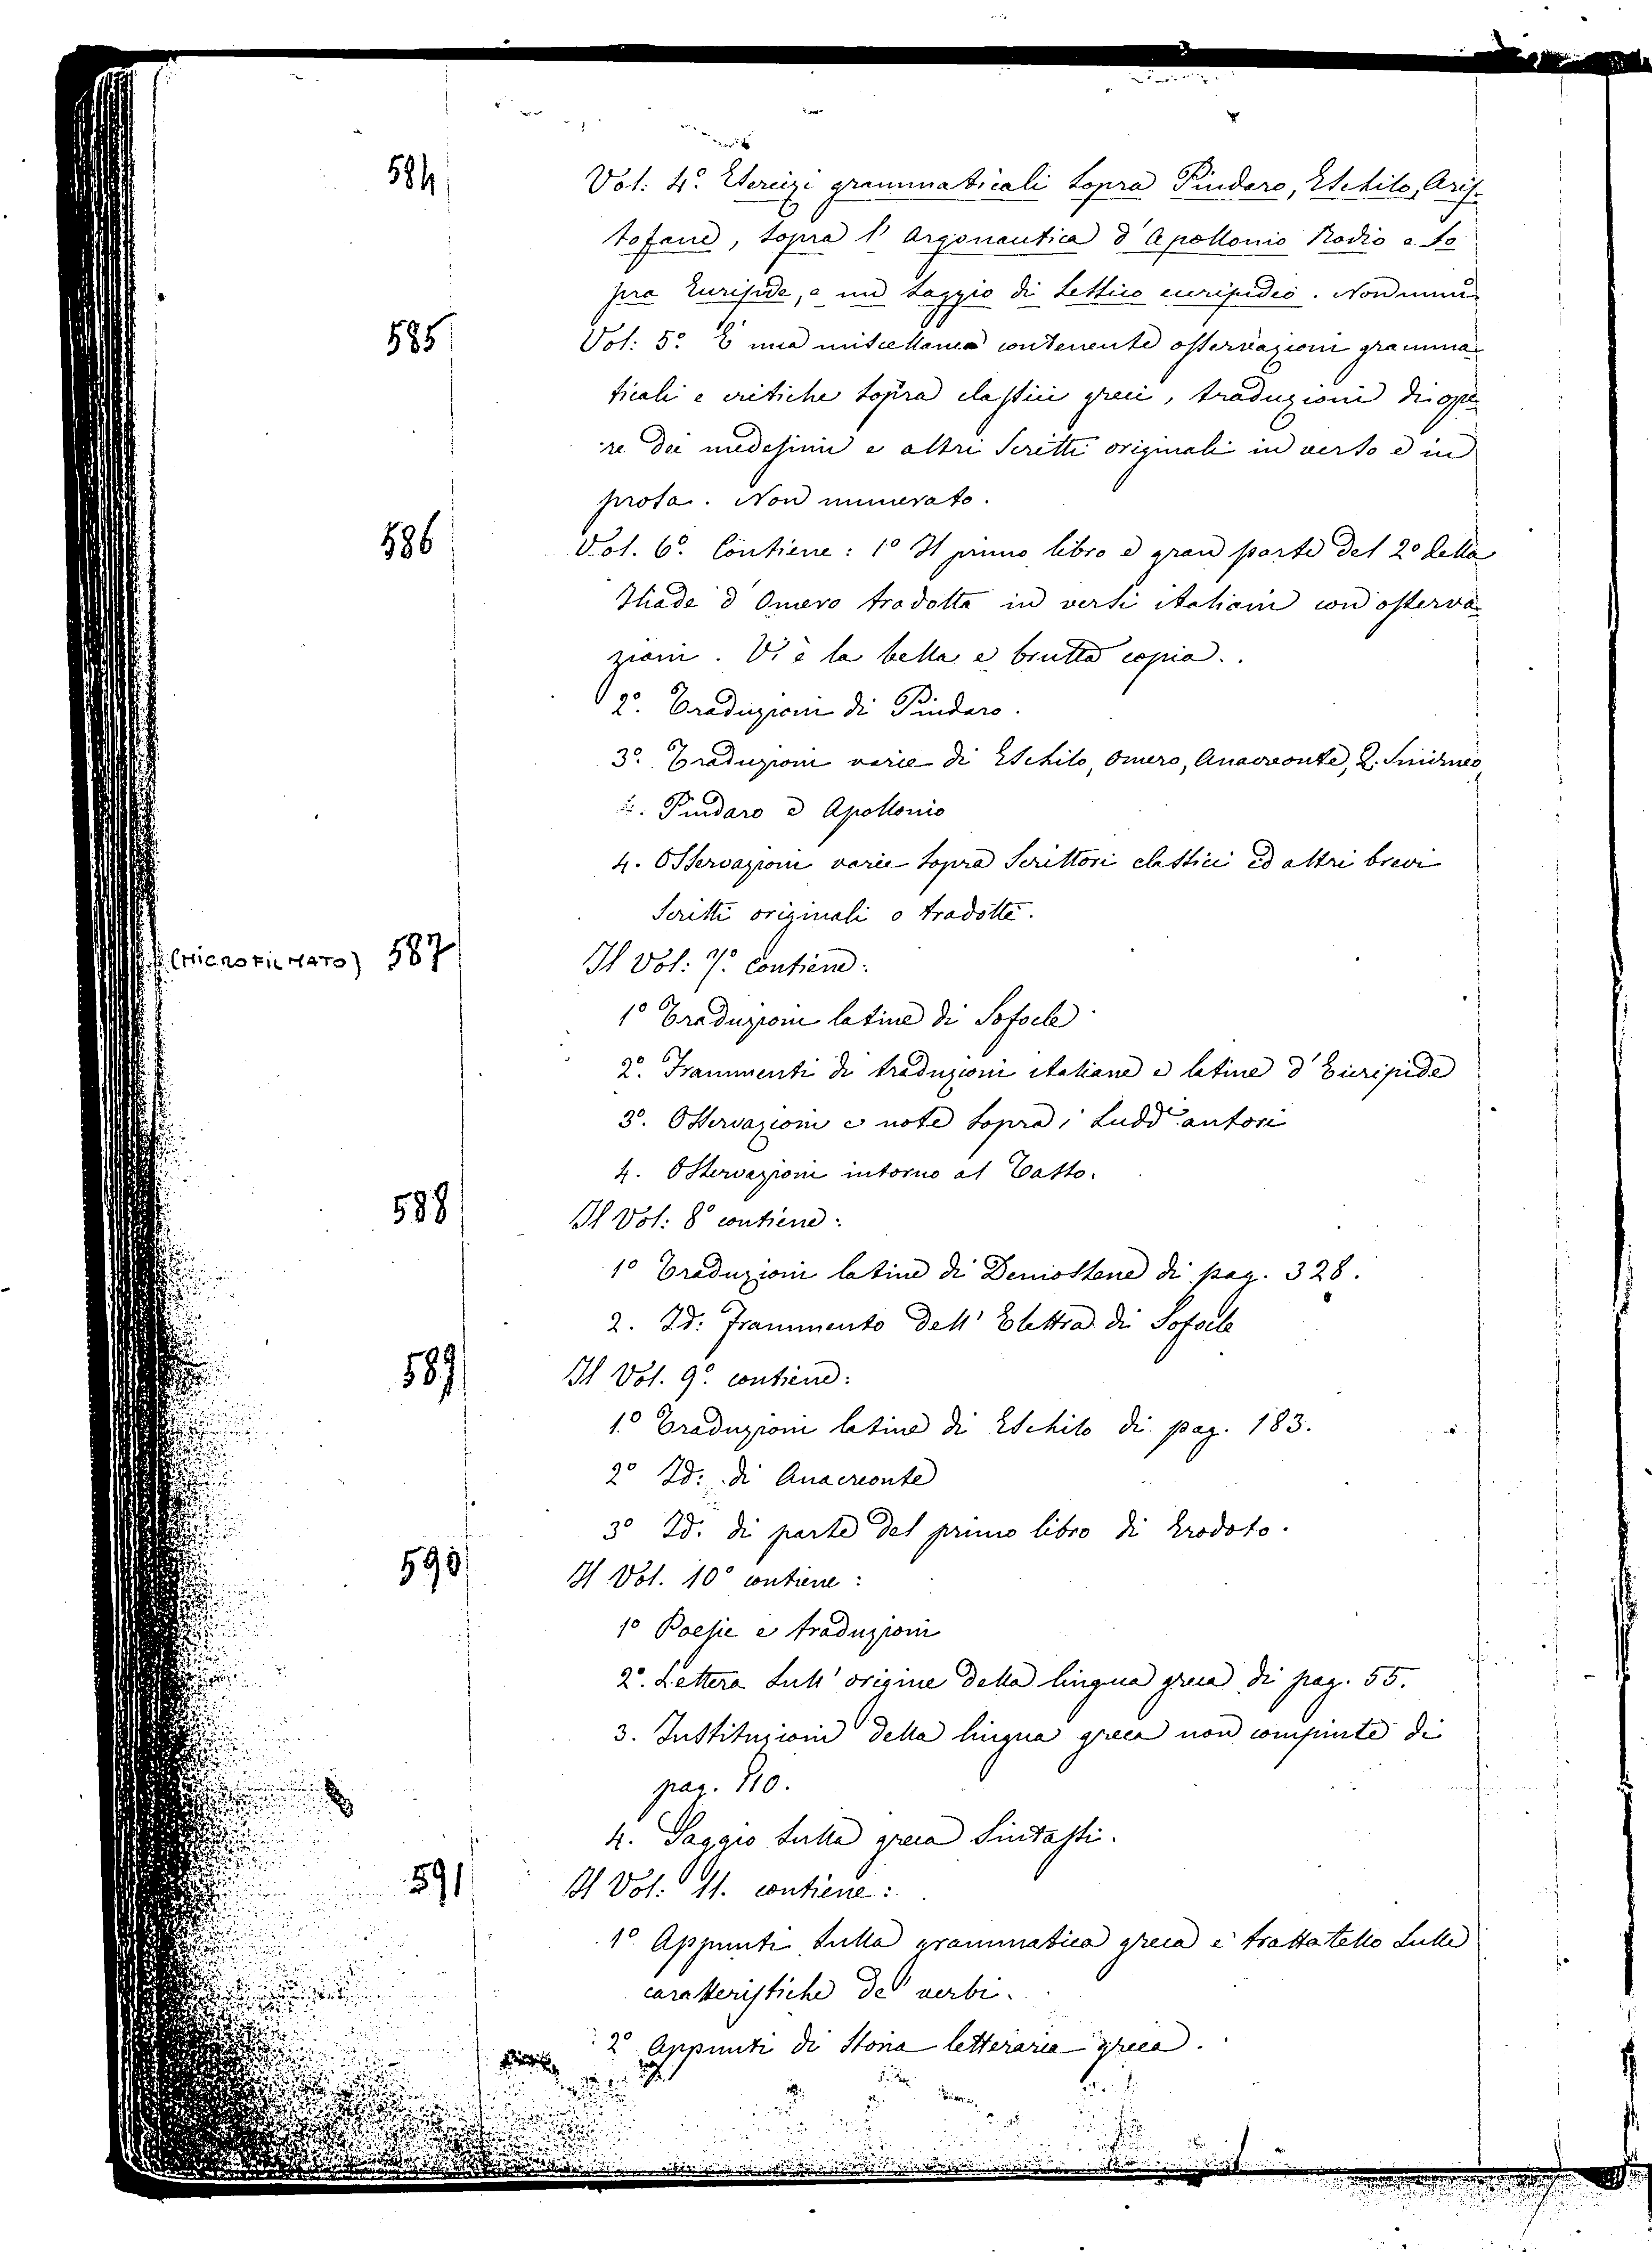 584 Vol: 4º. Esercizi grammaticali sopra Pindaro, Eschilo, Aris-
tofane, sopra l' Argonautica d' Apollonio Rodio e so
pra Euripide, e un saggio di Lessico euripideo. Non num:
585 Vol: 5º. È una miscellanea contenente osservazioni gramma-
ticali e critiche sopra classici greci, traduzioni di ope-
re dei medesimi e altri scritti originali in verso e in
prosa. Non numerato.
586 Vol. 6º. Contiene: 1º Il primo libro e gran parte del 2º della
Iliade d' Omero tradotta in versi italiani con osserva-
zioni. Vi è la bella e brutta copia.
2º. Traduzioni di Pindaro.
3º. Traduzioni varie di Eschilo, Omero, Anacreonte, Q. Smirneo,
Pindaro e Apollonio
4. Osservazioni varie sopra Scrittori classici ed altri brevi
Scritti originali o tradotti.
(MICROFILMATO) 587 Il Vol: 7º. contiene:
1º Traduzioni latine di Sofocle
2º. Frammenti di traduzioni italiane e latine d' Euripide
3º. Osservazioni e note sopra i sudd.i autori
4. Osservazioni intorno al Tasso.
588 Il Vol: 8º contiene:
1º Traduzioni latine di Demostene di pag. 328.
2. Id: Frammento dell' Elettra di Sofocle
589 Il Vol. 9º. contiene:
1º Traduzioni latine di Eschilo di pag. 183.
2º Id: di Anacreonte
3º Id. di parte del primo libro di Erodoto.
590 Il Vol. 10º contiene:
1º Poesie e traduzioni
2º. Lettera sull' origine della lingua greca di pag. 55.
3. Instituzioni della lingua greca non compiute di
pag. 110.
4. Saggio sulla greca Sintassi.
591 Il Vol: 11. contiene:
1º Appunti sulla grammatica greca e trattatello sulle
caratteristiche de' verbi.
2º Appunti di Storia letteraria greca.